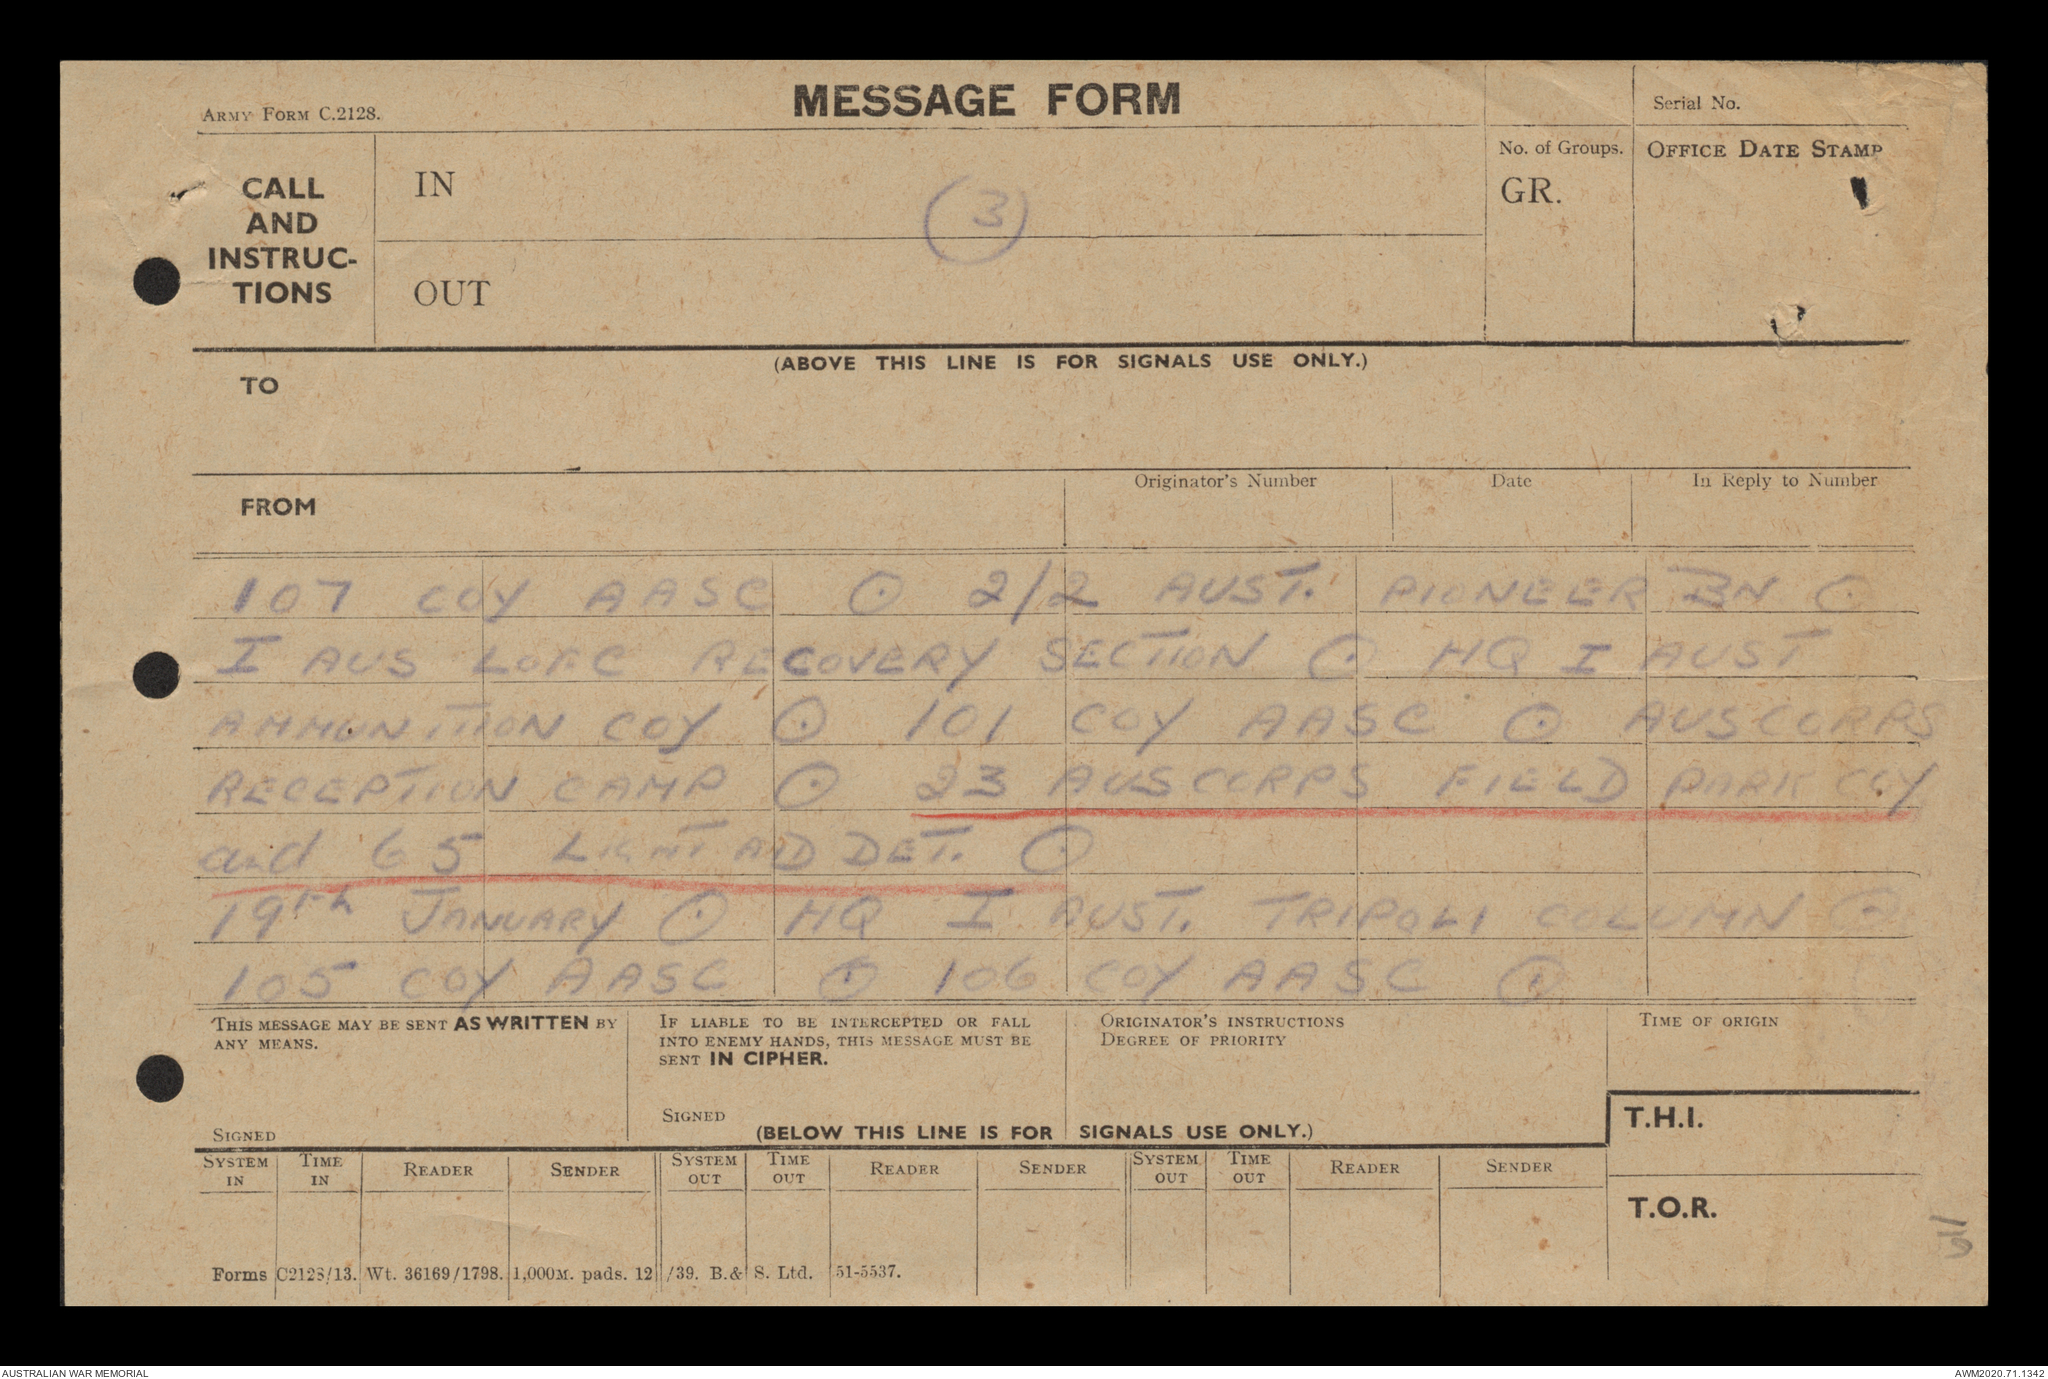 MESSAGE FORM
ARMY FORM C.2128.
Serial No.
CALL AND INSTRUC-TIONS
IN
(3)
OUT
No. of Groups.
GR.
OFFICE DATE STAMP
(ABOVE THIS LINE IS FOR SIGNALS USE ONLY.)
TO
FROM
Originator's Number
Date
In Reply to Number
107 COY AASC ⊙ 2/2 AUST. PIONEER BN ⊙
I AUS LOFC RECOVERY SECTION ⊙ HQ I AUST
AMMUNITION COY ⊙ 101 COY AASC ⊙ AUSCORPS
RECEPTION CAMP ⊙ 23 AUSCORPS FIELD PARK COY
and 65 LIGHT AID DET. ⊙
19th JANUARY ⊙ HQ I AUST. TRIPOLI COLUMN ⊙
105 COY AASC ⊙ 106 COY AASC ⊙
THIS MESSAGE MAY BE SENT AS WRITTEN BY
ANY MEANS.
SIGNED
IF LIABLE TO BE INTERCEPTED OR FALL
INTO ENEMY HANDS, THIS MESSAGE MUST BE
SENT IN CIPHER.
SIGNED
ORIGINATOR'S INSTRUCTIONS
DEGREE OF PRIORITY
TIME OF ORIGIN
(BELOW THIS LINE IS FOR SIGNALS USE ONLY.)
T.H.I.
SYSTEM IN
TIME IN
READER
SENDER
SYSTEM OUT
TIME OUT
READER
SENDER
SYSTEM OUT
TIME OUT
READER
SENDER
T.O.R.
Forms C2128/13. Wt. 36169/1798. 1,000M. pads. 12/39. B.& S. Ltd. 51-5537.
AUSTRALIAN WAR MEMORIAL
AWM2020.71.1342